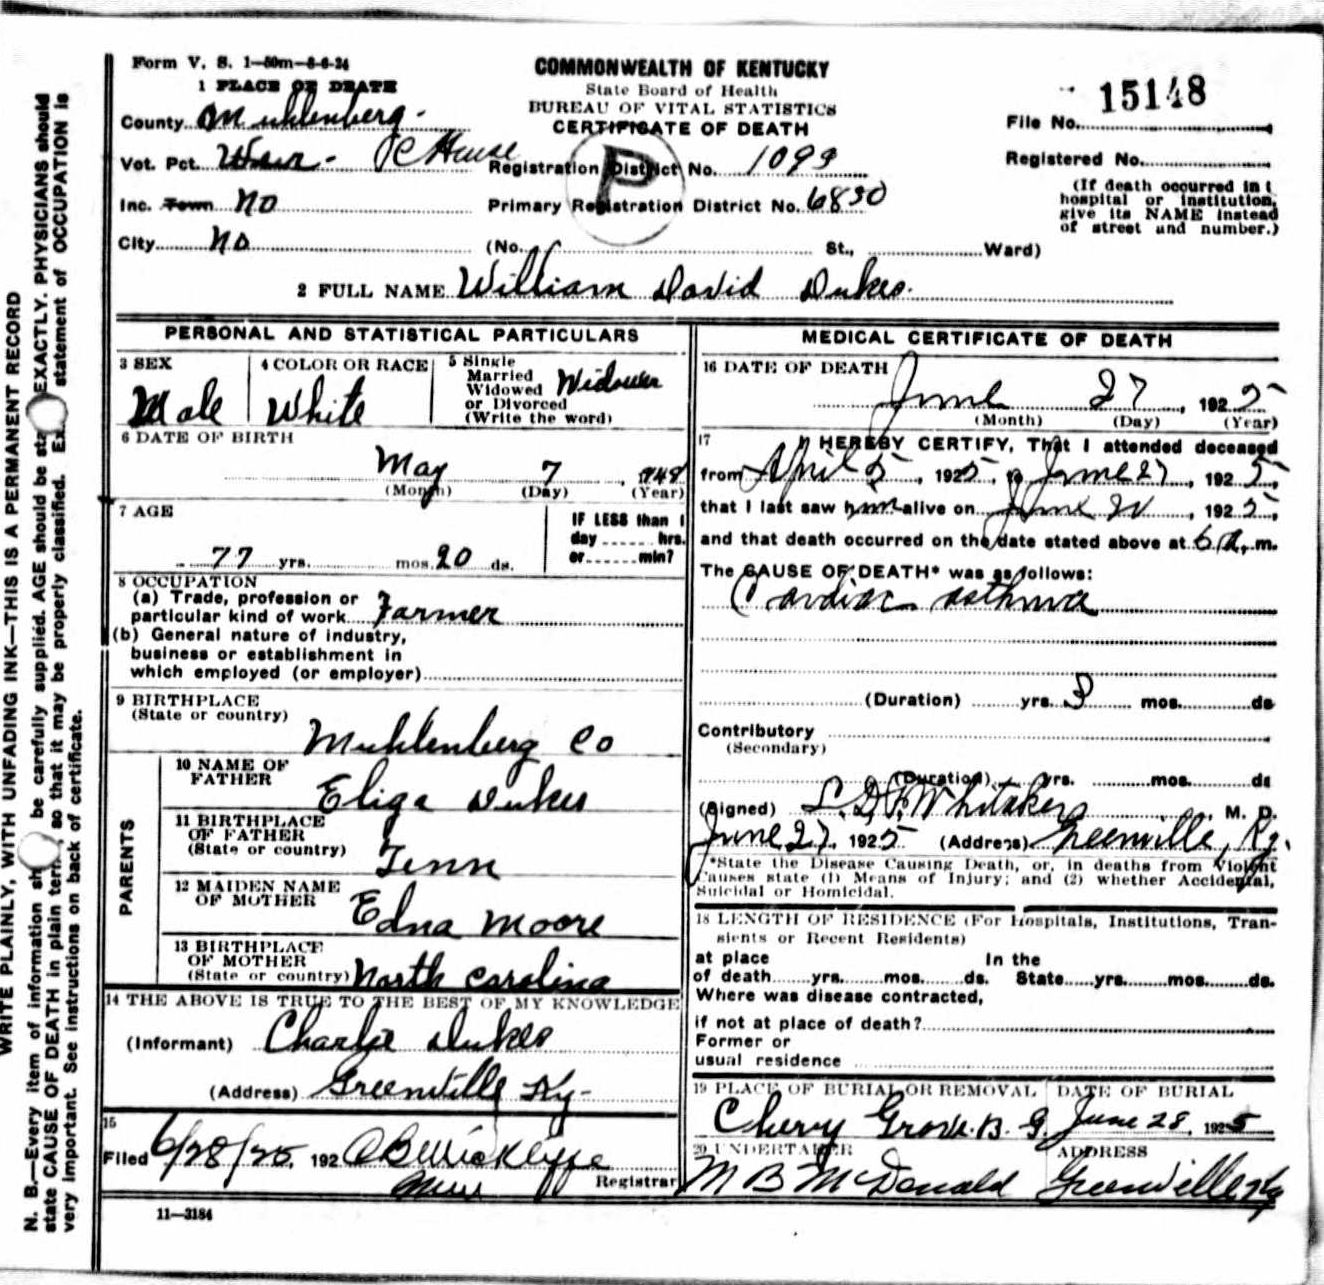 Form V. S. 1—50m—8-6-24
COMMONWEALTH OF KENTUCKY
State Board of Health
BUREAU OF VITAL STATISTICS
CERTIFICATE OF DEATH
15148
File No.
Registered No.
(If death occurred in a hospital or institution, give its NAME instead of street and number.)
1 PLACE OF DEATH
County Muhlenberg
Vot. Pct. Weir - C House Registration District No. 1099
Inc. Town No Primary Registration District No. 6830
P
City No (No. St., Ward)
2 FULL NAME William David Dukes
PERSONAL AND STATISTICAL PARTICULARS
3 SEX
Male
4 COLOR OR RACE
White
5 Single
Married
Widowed
or Divorced
(Write the word)
Widower
6 DATE OF BIRTH
May 7, 1848
(Month) (Day) (Year)
7 AGE
77 yrs. mos. 20 ds.
IF LESS than 1
day hrs.
or min?
8 OCCUPATION
(a) Trade, profession or
particular kind of work Farmer
(b) General nature of industry,
business or establishment in
which employed (or employer)
9 BIRTHPLACE
(State or country)
Muhlenberg Co
PARENTS
10 NAME OF
FATHER
Eliga Dukes
11 BIRTHPLACE
OF FATHER
(State or country)
Tenn
12 MAIDEN NAME
OF MOTHER
Edna Moore
13 BIRTHPLACE
OF MOTHER
(State or country) North Carolina
14 THE ABOVE IS TRUE TO THE BEST OF MY KNOWLEDGE
(Informant) Charlie Dukes
(Address) Greenville Ky-
15
Filed 6/28/25, 192
Registrar
11—3184
MEDICAL CERTIFICATE OF DEATH
16 DATE OF DEATH
June 27, 1925
(Month) (Day) (Year)
17 I HEREBY CERTIFY, That I attended deceased
from April 5, 1925, to June 27, 1925,
that I last saw him alive on June, 1925,
and that death occurred on the date stated above at 6 a. m.
The CAUSE OF DEATH* was as follows:
Cardiac asthma
(Duration) yrs. 3 mos. ds
Contributory
(Secondary)
(Duration) yrs. mos. ds
(Signed) Whitaker, M. D.
June 27, 1925 (Address) Greenville, Ky.
*State the Disease Causing Death, or, in deaths from Violent
Causes state (1) Means of Injury; and (2) whether Accidental,
Suicidal or Homicidal.
18 LENGTH OF RESIDENCE (For Hospitals, Institutions, Tran-
sients or Recent Residents)
at place In the
of death yrs. mos. ds. State yrs. mos. ds.
Where was disease contracted,
if not at place of death?
Former or
usual residence
19 PLACE OF BURIAL OR REMOVAL DATE OF BURIAL
Cherry Grove B. G. June 28, 1925
20 UNDERTAKER ADDRESS
M B McDonald Greenville Ky
WRITE PLAINLY, WITH UNFADING INK—THIS IS A PERMANENT RECORD
N. B.—Every item of information be carefully supplied. AGE should be EXACTLY. PHYSICIANS should
state CAUSE OF DEATH in plain so that it may be properly classified. statement of OCCUPATION is
very important. See instructions on back of certificate.